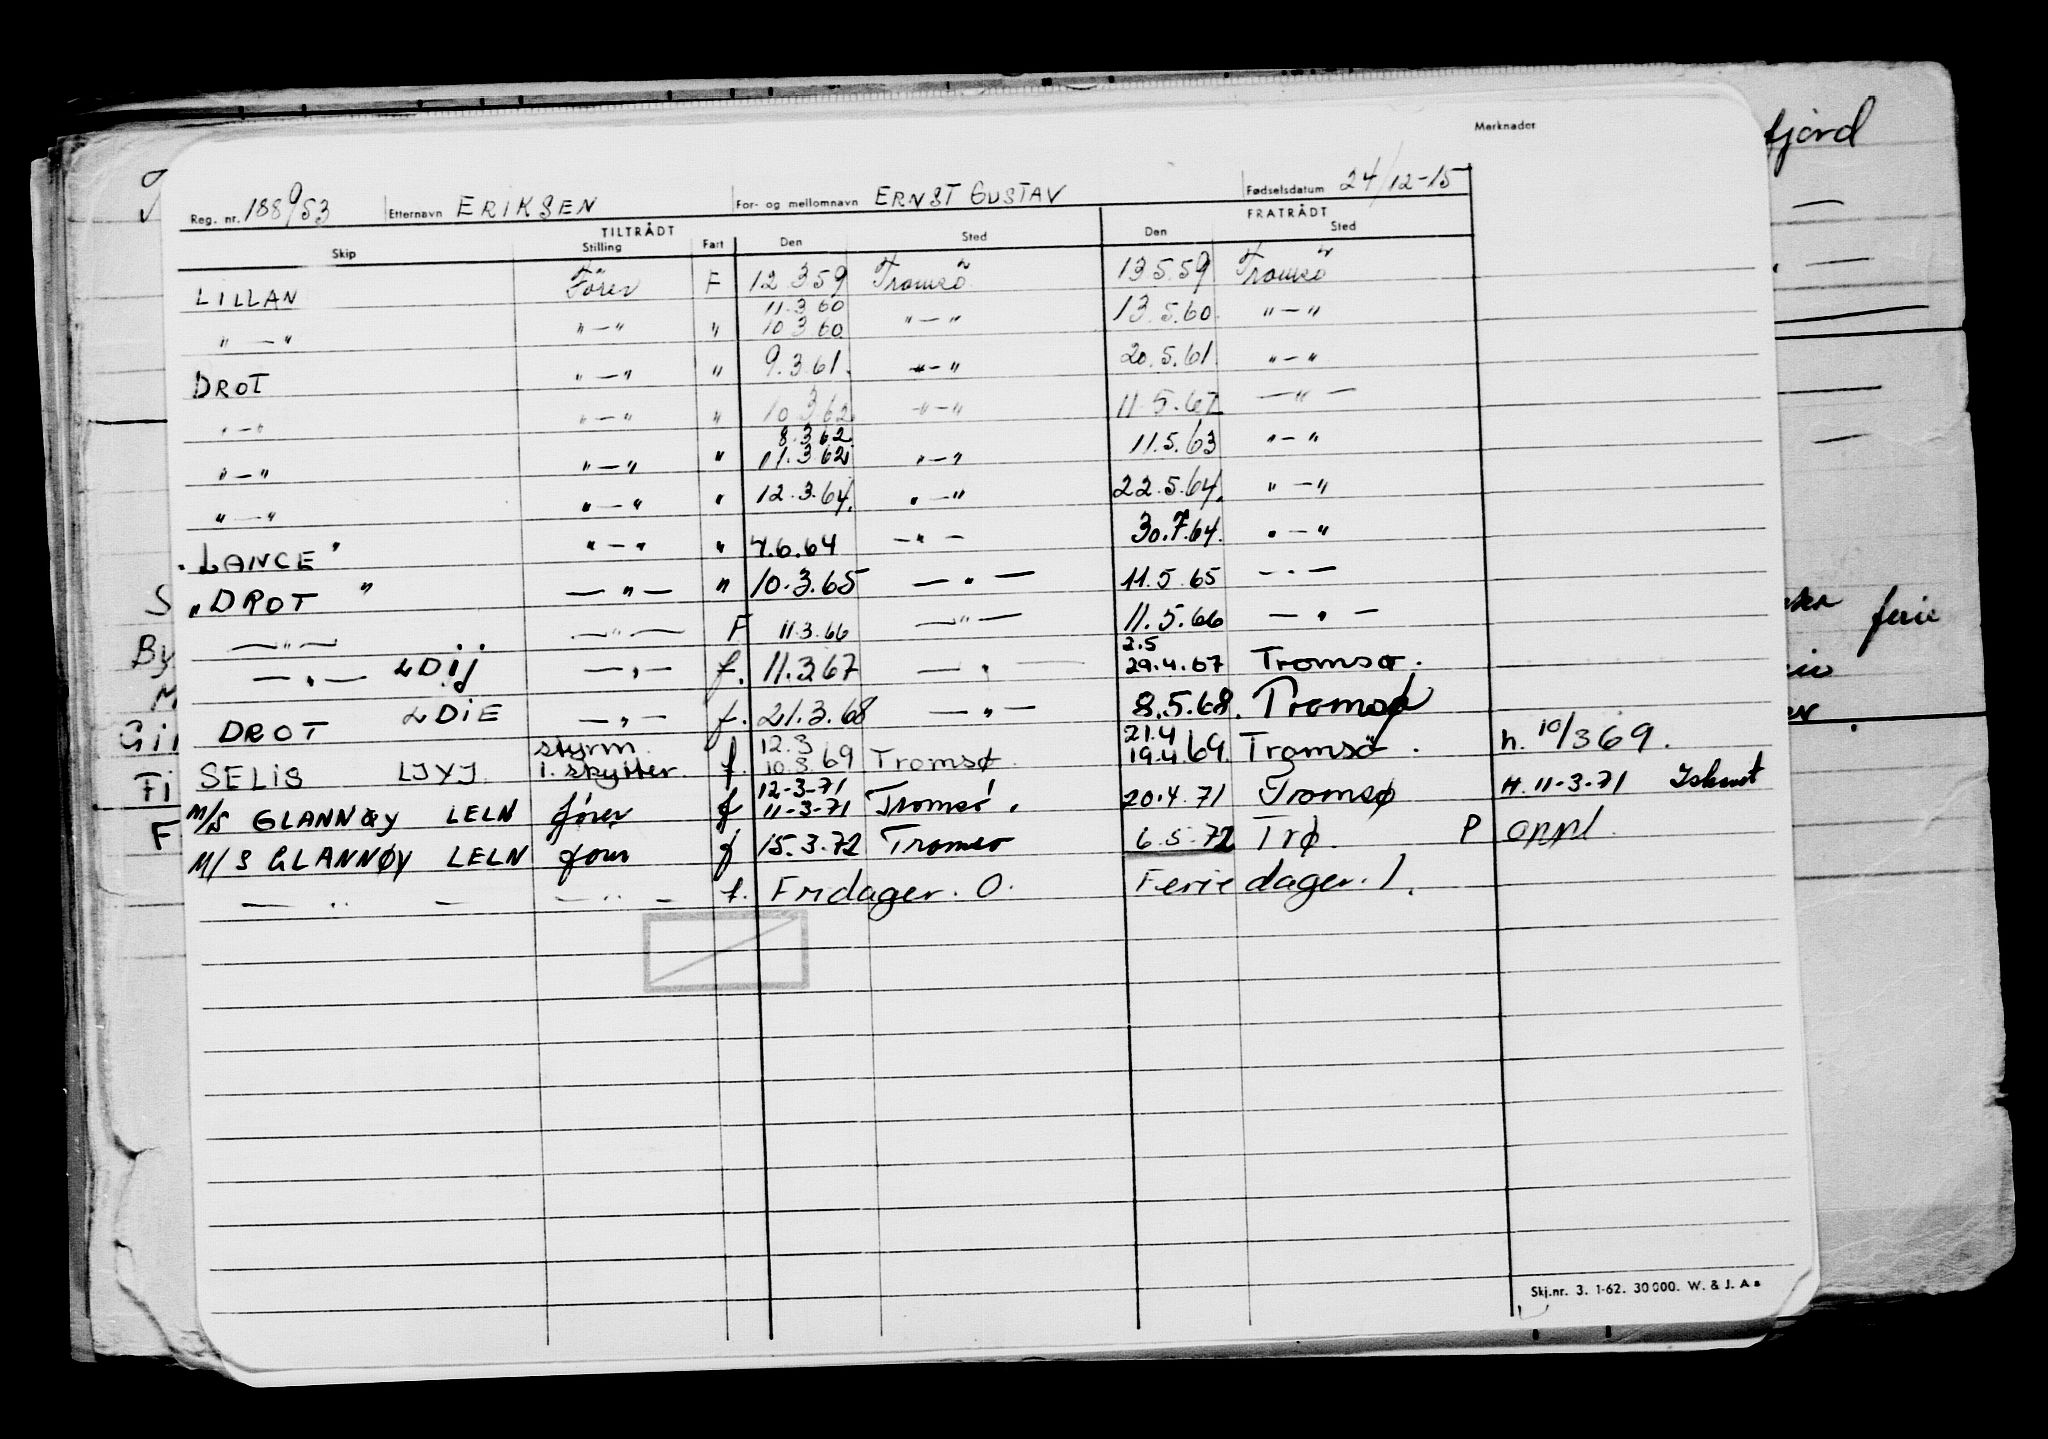 Merknader
Reg. nr. 188953 Etternavn ERIKSEN For- og mellomnavn ERNST GUSTAV Fødselsdatum 24/12-15
TILTRÅDT FRATRÅDT
Skip Stilling Fart Den Sted Den Sted
LILLAN Förer F 12.3.59 Tromsö 13.5.59 Tromsö
11.3.60
" — " " — " " 10.3.60 " — " 13.5.60. " — "
DROT " — " " 9.3.61. " — " 20.5.61 " — "
" — " " — " " 10.3.62. " — " 11.5.62 — " —
8.3.62
" — " " — " " 11.3.62 " — " 11.5.63 " — "
" — " " — " " 12.3.64. " — " 22.5.64. " — "
"LANCE" " — " " 7.6.64 — " — 30.7.64. " — "
"DROT" — " — " 10.3.65 — " — 11.5.65 — " —
— " — — " — F 11.3.66 — " — 11.5.66 — " —
2.5
— " — LDIJ — " — f. 11.3.67 — " — 29.4.67 Tromsø.
DROT LDIE — " — f. 21.3.68 — " — 8.5.68. Tromsø
styrm. 12.3 21.4
SELIS LJYJ 1. skytter. f. 10.3.69 Tromsø. 19.4.69. Tromsø. h. 10/3 69.
12-3-71
M/S GLANNØY LELN fører f 11-3-71 Tromsø. 20.4.71 Tromsø H. 11-3-71
M/S GLANNØY LELN f 15.3.72 Tromsø 6.5.72 Trø. P oppl.
— " — — " — f. Fridager. 0. Feriedager. 1.
Skj.nr. 3. 1-62. 30 000. W. & J. A s
fjord
S
By
M
Fi
F
ferie